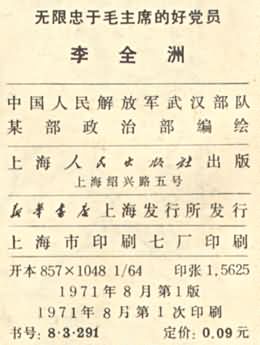 无限忠于毛主席的好党员
李全洲
中国人民解放军武汉部队
某部政治部编绘
上海人民出版社出版
上海绍兴路五号
新华书店上海发行所发行
上海市印刷七厂印刷
开本857×1048 1/64 印张1,5625
1971年8月第1版
1971年8月第1次印刷
书号:8·3·291 定价:0.09元